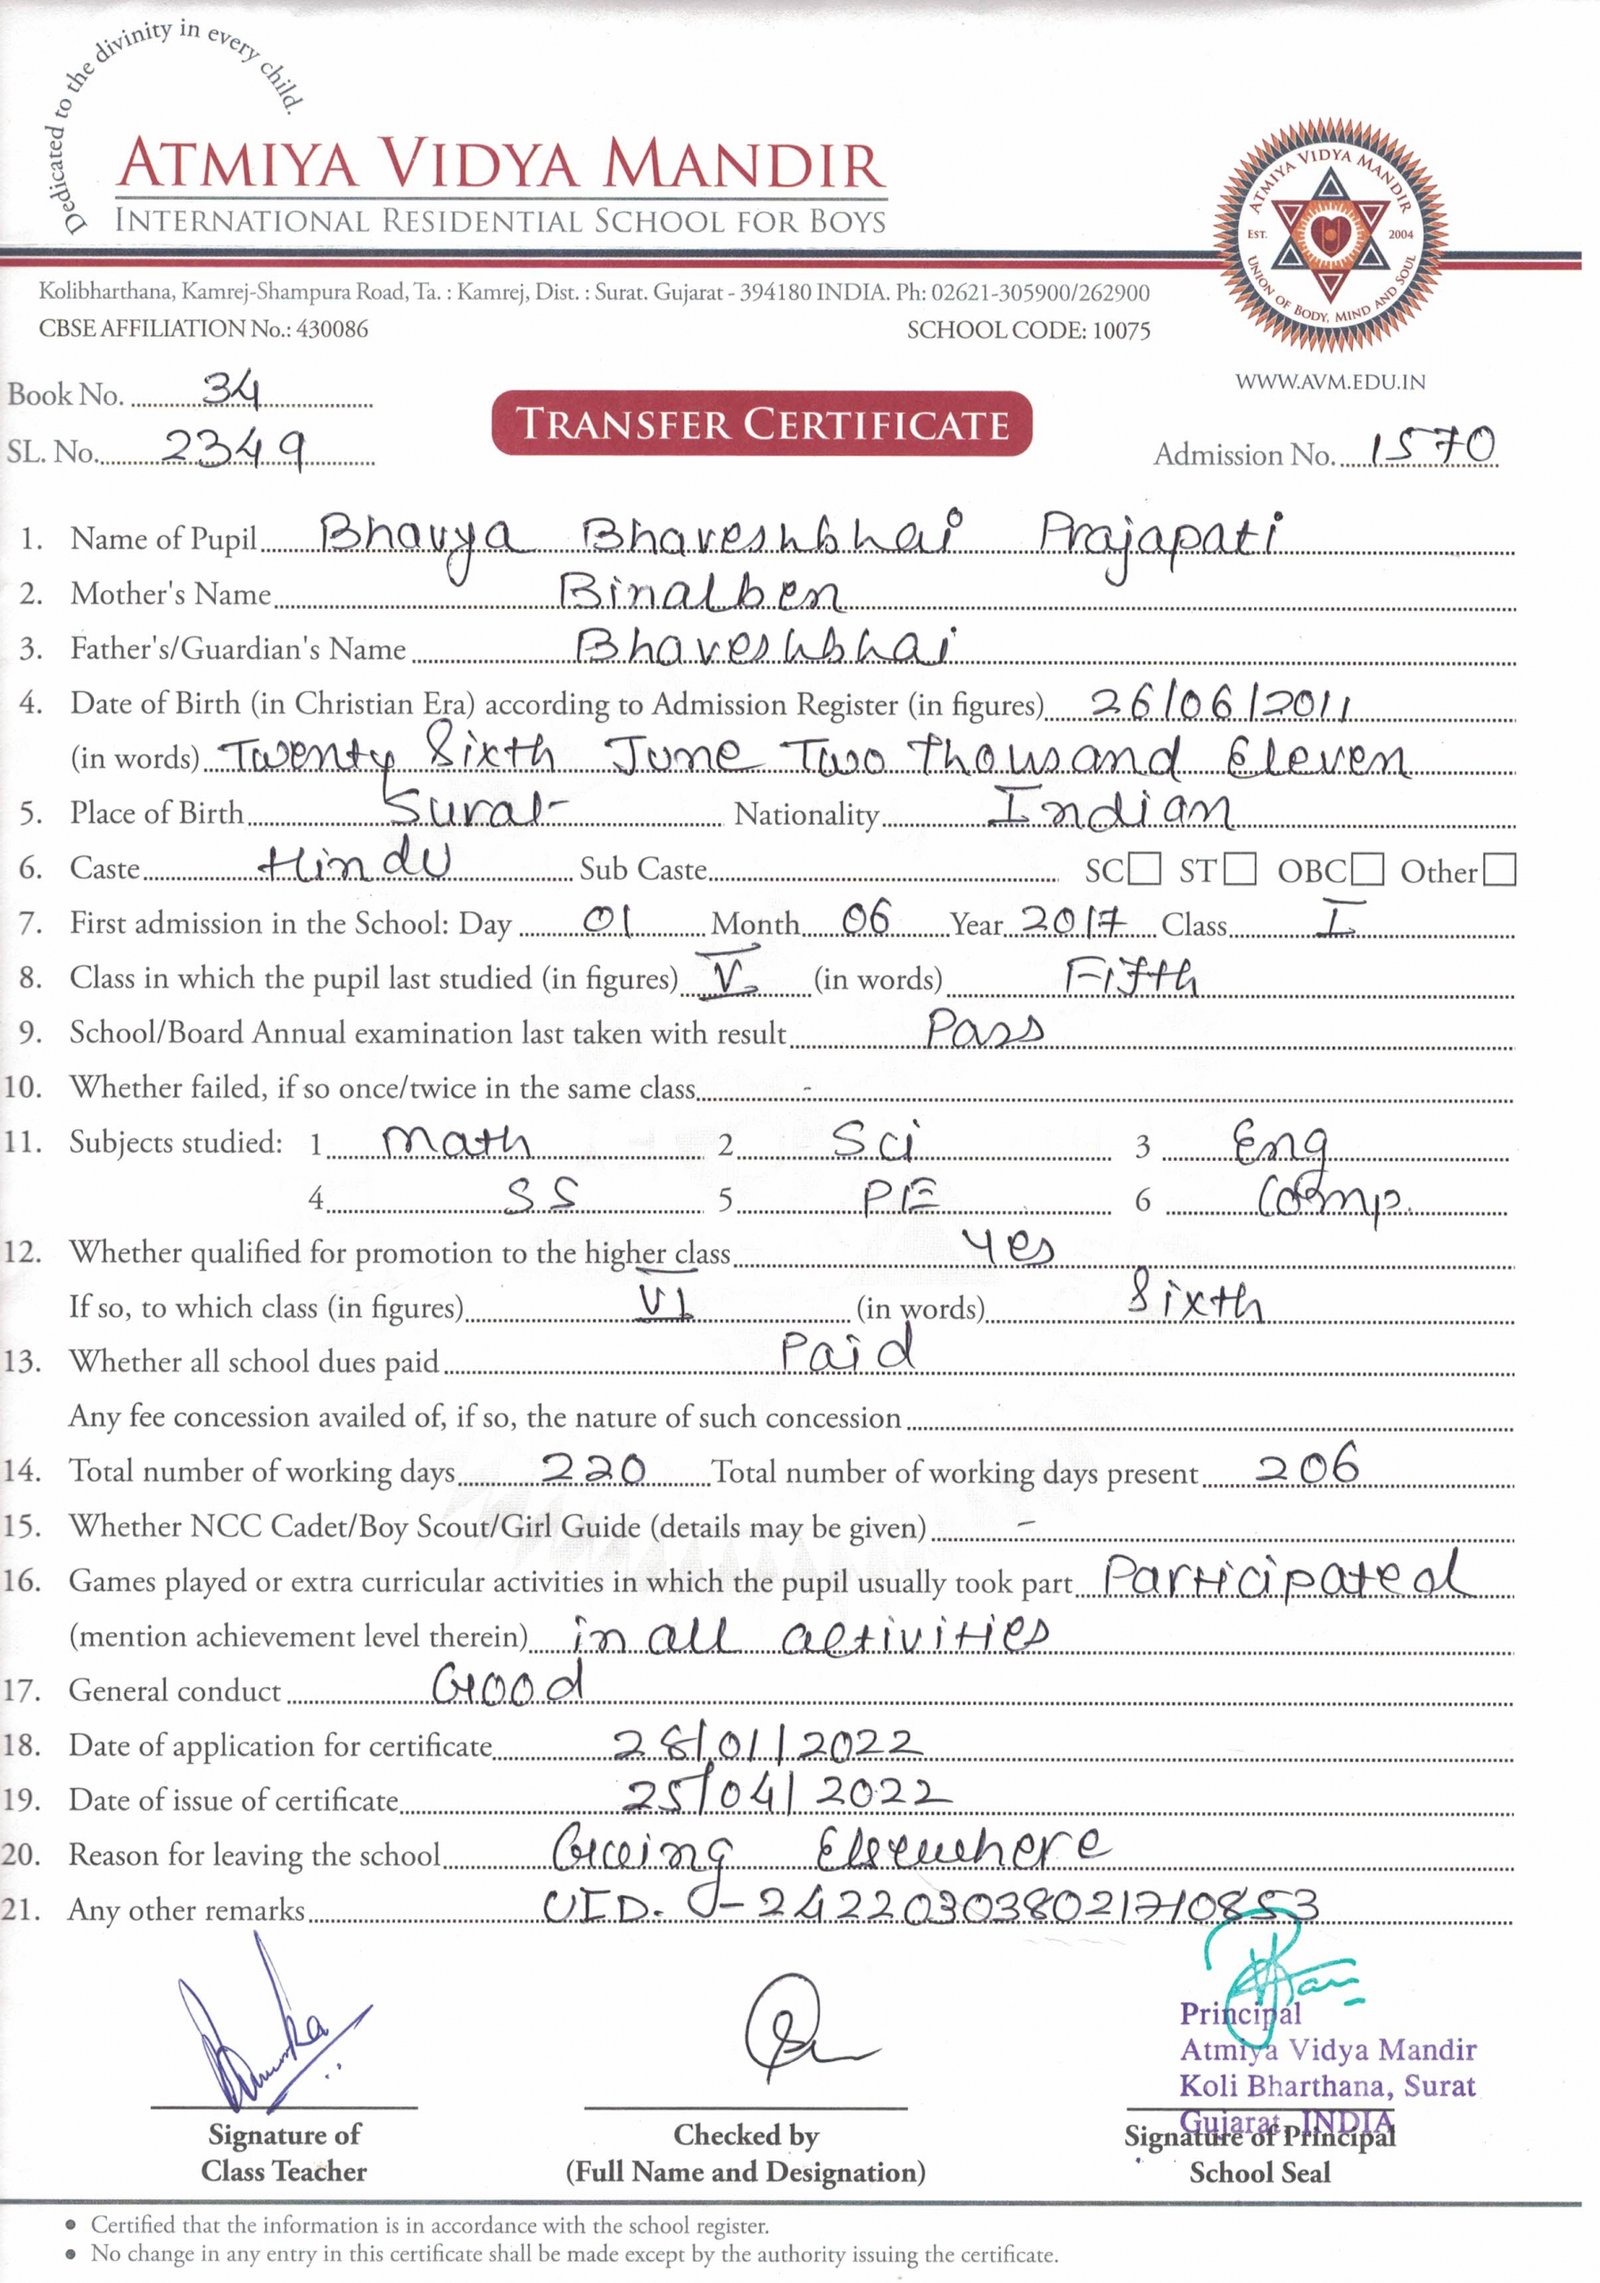 Dedicated to the divinity in every child.
ATMIYA VIDYA MANDIR
INTERNATIONAL RESIDENTIAL SCHOOL FOR BOYS
ATMIYA VIDYA MANDIR
EST. 2004
UNION OF BODY, MIND AND SOUL
Kolibharthana, Kamrej-Shampura Road, Ta. : Kamrej, Dist. : Surat. Gujarat - 394180 INDIA. Ph: 02621-305900/262900
CBSE AFFILIATION No.: 430086 SCHOOL CODE: 10075
WWW.AVM.EDU.IN
Book No. 34
TRANSFER CERTIFICATE
SL. No. 2349 Admission No. 1570
1. Name of Pupil Bhavya Bhaveshbhai Prajapati
2. Mother's Name Binalben
3. Father's/Guardian's Name Bhaveshbhai
4. Date of Birth (in Christian Era) according to Admission Register (in figures) 26/06/2011
(in words) Twenty Sixth June Two Thousand Eleven
5. Place of Birth Surat Nationality Indian
6. Caste Hindu Sub Caste SC ST OBC Other
7. First admission in the School: Day 01 Month 06 Year 2017 Class I
8. Class in which the pupil last studied (in figures) V (in words) Fifth
9. School/Board Annual examination last taken with result Pass
10. Whether failed, if so once/twice in the same class -
11. Subjects studied: 1 Math 2 Sci 3 Eng
4 SS 5 PE 6 Comp.
12. Whether qualified for promotion to the higher class Yes
If so, to which class (in figures) VI (in words) Sixth
13. Whether all school dues paid Paid
Any fee concession availed of, if so, the nature of such concession
14. Total number of working days 220 Total number of working days present 206
15. Whether NCC Cadet/Boy Scout/Girl Guide (details may be given) -
16. Games played or extra curricular activities in which the pupil usually took part Participated
(mention achievement level therein) in all activities
17. General conduct Good
18. Date of application for certificate 28/01/2022
19. Date of issue of certificate 25/04/2022
20. Reason for leaving the school Going Elsewhere
21. Any other remarks UID. 0-242203038021710853
Principal
Atmiya Vidya Mandir
Koli Bharthana, Surat
Gujarat, INDIA
Signature of Checked by Signature of Principal
Class Teacher (Full Name and Designation) School Seal
• Certified that the information is in accordance with the school register.
• No change in any entry in this certificate shall be made except by the authority issuing the certificate.